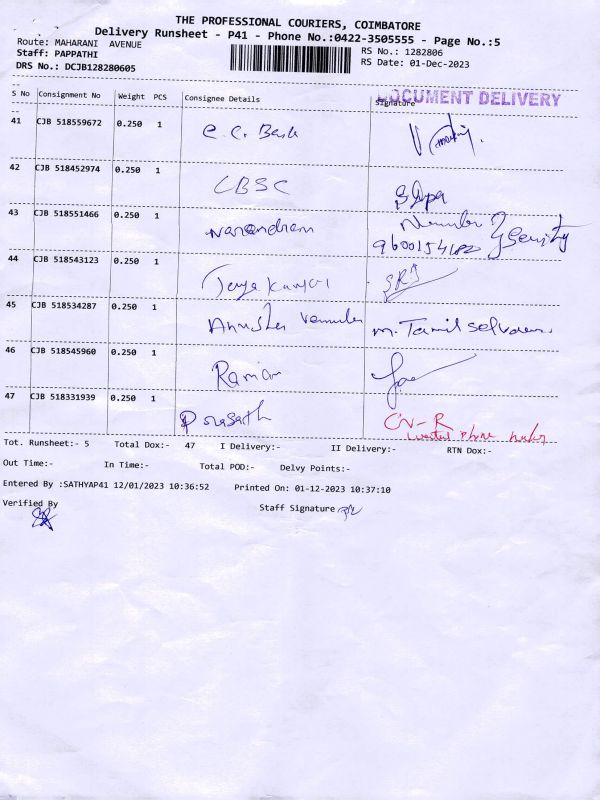 THE PROFESSIONAL COURIERS, COIMBATORE
Delivery Runsheet - P41 - Phone No.:0422-3505555 - Page No.:5
Route: MAHARANI AVENUE
Staff: PAPPATHI
DRS No.: DCJB128280605
RS No.: 1282806
RS Date: 01-Dec-2023
DOCUMENT DELIVERY
S No Consignment No Weight PCS Consignee Details Signature
41 CJB 518559672 0.250 1
42 CJB 518452974 0.250 1 CBSC
43 CJB 518551466 0.250 1 Narendran
44 CJB 518543123 0.250 1
45 CJB 518534287 0.250 1 m. Tamil selvan
46 CJB 518545960 0.250 1 Raman
47 CJB 518331939 0.250 1 Prasath CN-R
Tot. Runsheet:- 5 Total Dox:- 47 I Delivery:- II Delivery:- RTN Dox:-
Out Time:- In Time:- Total POD:- Delvy Points:-
Entered By :SATHYAP41 12/01/2023 10:36:52 Printed On: 01-12-2023 10:37:10
Verified By
Staff Signature